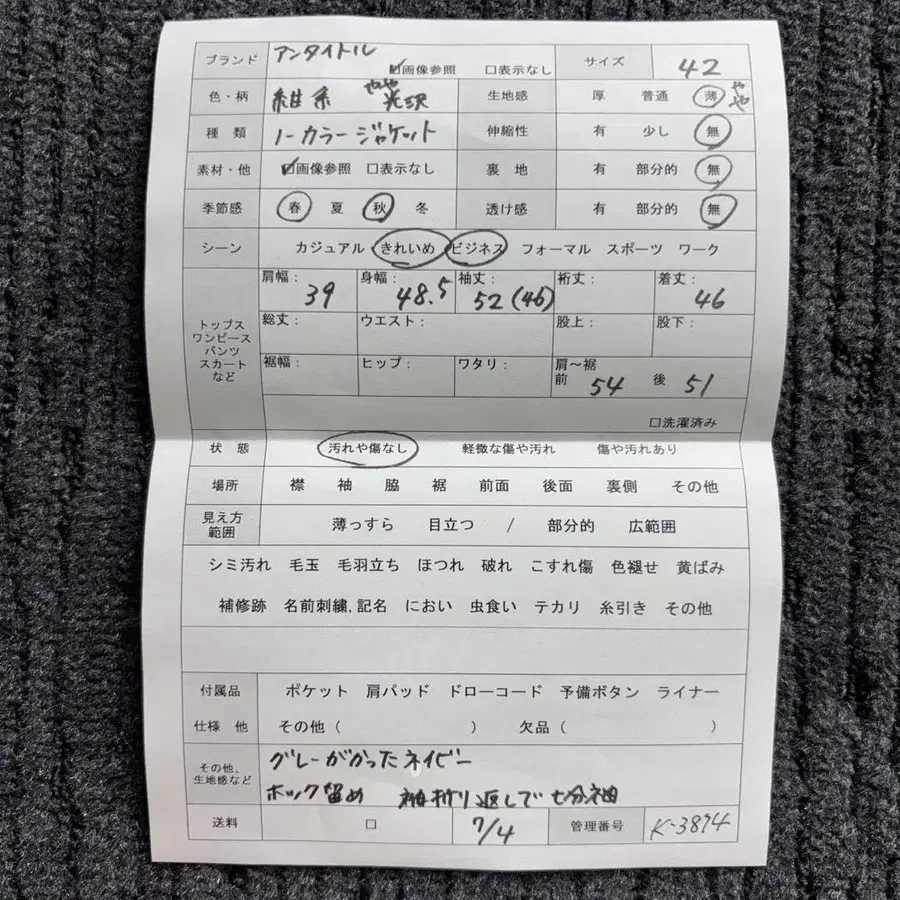 ブランド アンタイトル ☑画像参照 □表示なし サイズ 42
色・柄 紺系 やや光沢 生地感 厚 普通 薄 やや
種類 ノーカラージャケット 伸縮性 有 少し 無
素材・他 ☑画像参照 □表示なし 裏地 有 部分的 無
季節感 春 夏 秋 冬 透け感 有 部分的 無
シーン カジュアル きれいめ ビジネス フォーマル スポーツ ワーク
トップス ワンピース パンツ スカート など
肩幅: 39 身幅: 48.5 袖丈: 52(46) 裄丈: 着丈: 46
総丈: ウエスト: 股上: 股下:
裾幅: ヒップ: ワタリ: 肩〜裾 前 54 後 51
□洗濯済み
状態 汚れや傷なし 軽微な傷や汚れ 傷や汚れあり
場所 襟 袖 脇 裾 前面 後面 裏側 その他
見え方 範囲 薄っすら 目立つ / 部分的 広範囲
シミ汚れ 毛玉 毛羽立ち ほつれ 破れ こすれ傷 色褪せ 黄ばみ
補修跡 名前刺繍,記名 におい 虫食い テカリ 糸引き その他
付属品 ポケット 肩パッド ドローコード 予備ボタン ライナー
仕様 他 その他( ) 欠品( )
その他、生地感など グレーがかったネイビー
ホック留め 袖折り返しで七分袖
送料 □ 7/4 管理番号 K-3874